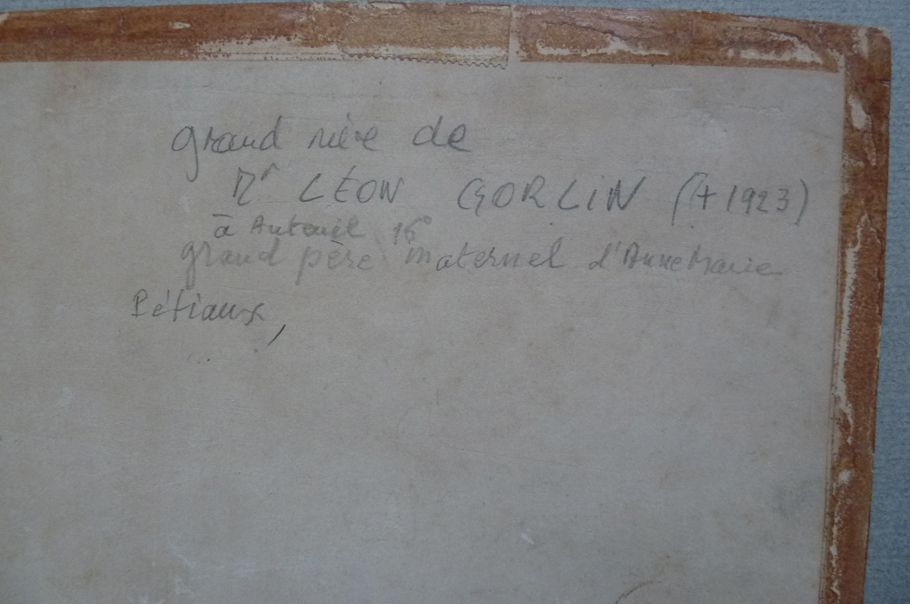 grand mère de
Mr LÉON GORLIN (+ 1923)
à Auteuil 16e
grand père maternel d'Anne Marie
Pétiaux,